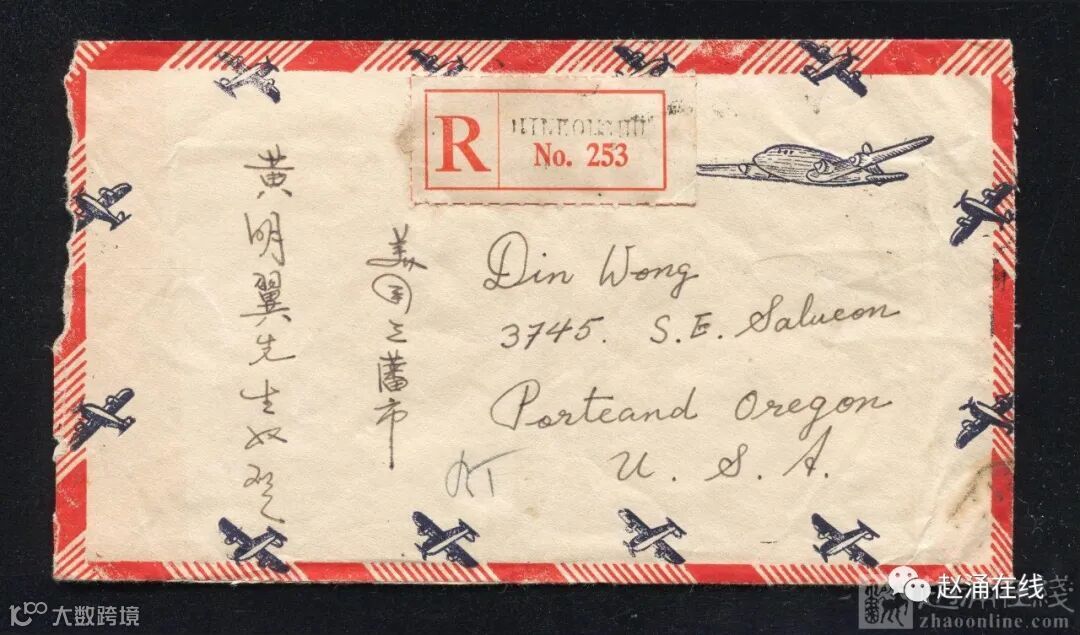 R
No. 253
Din Wong
3745. S.E. Salucon
Porteand Oregon
U. S. A.
美国之藩市
黄明翼先生收启
大数跨境
赵涌在线
赵涌在线
zhaoonline.com